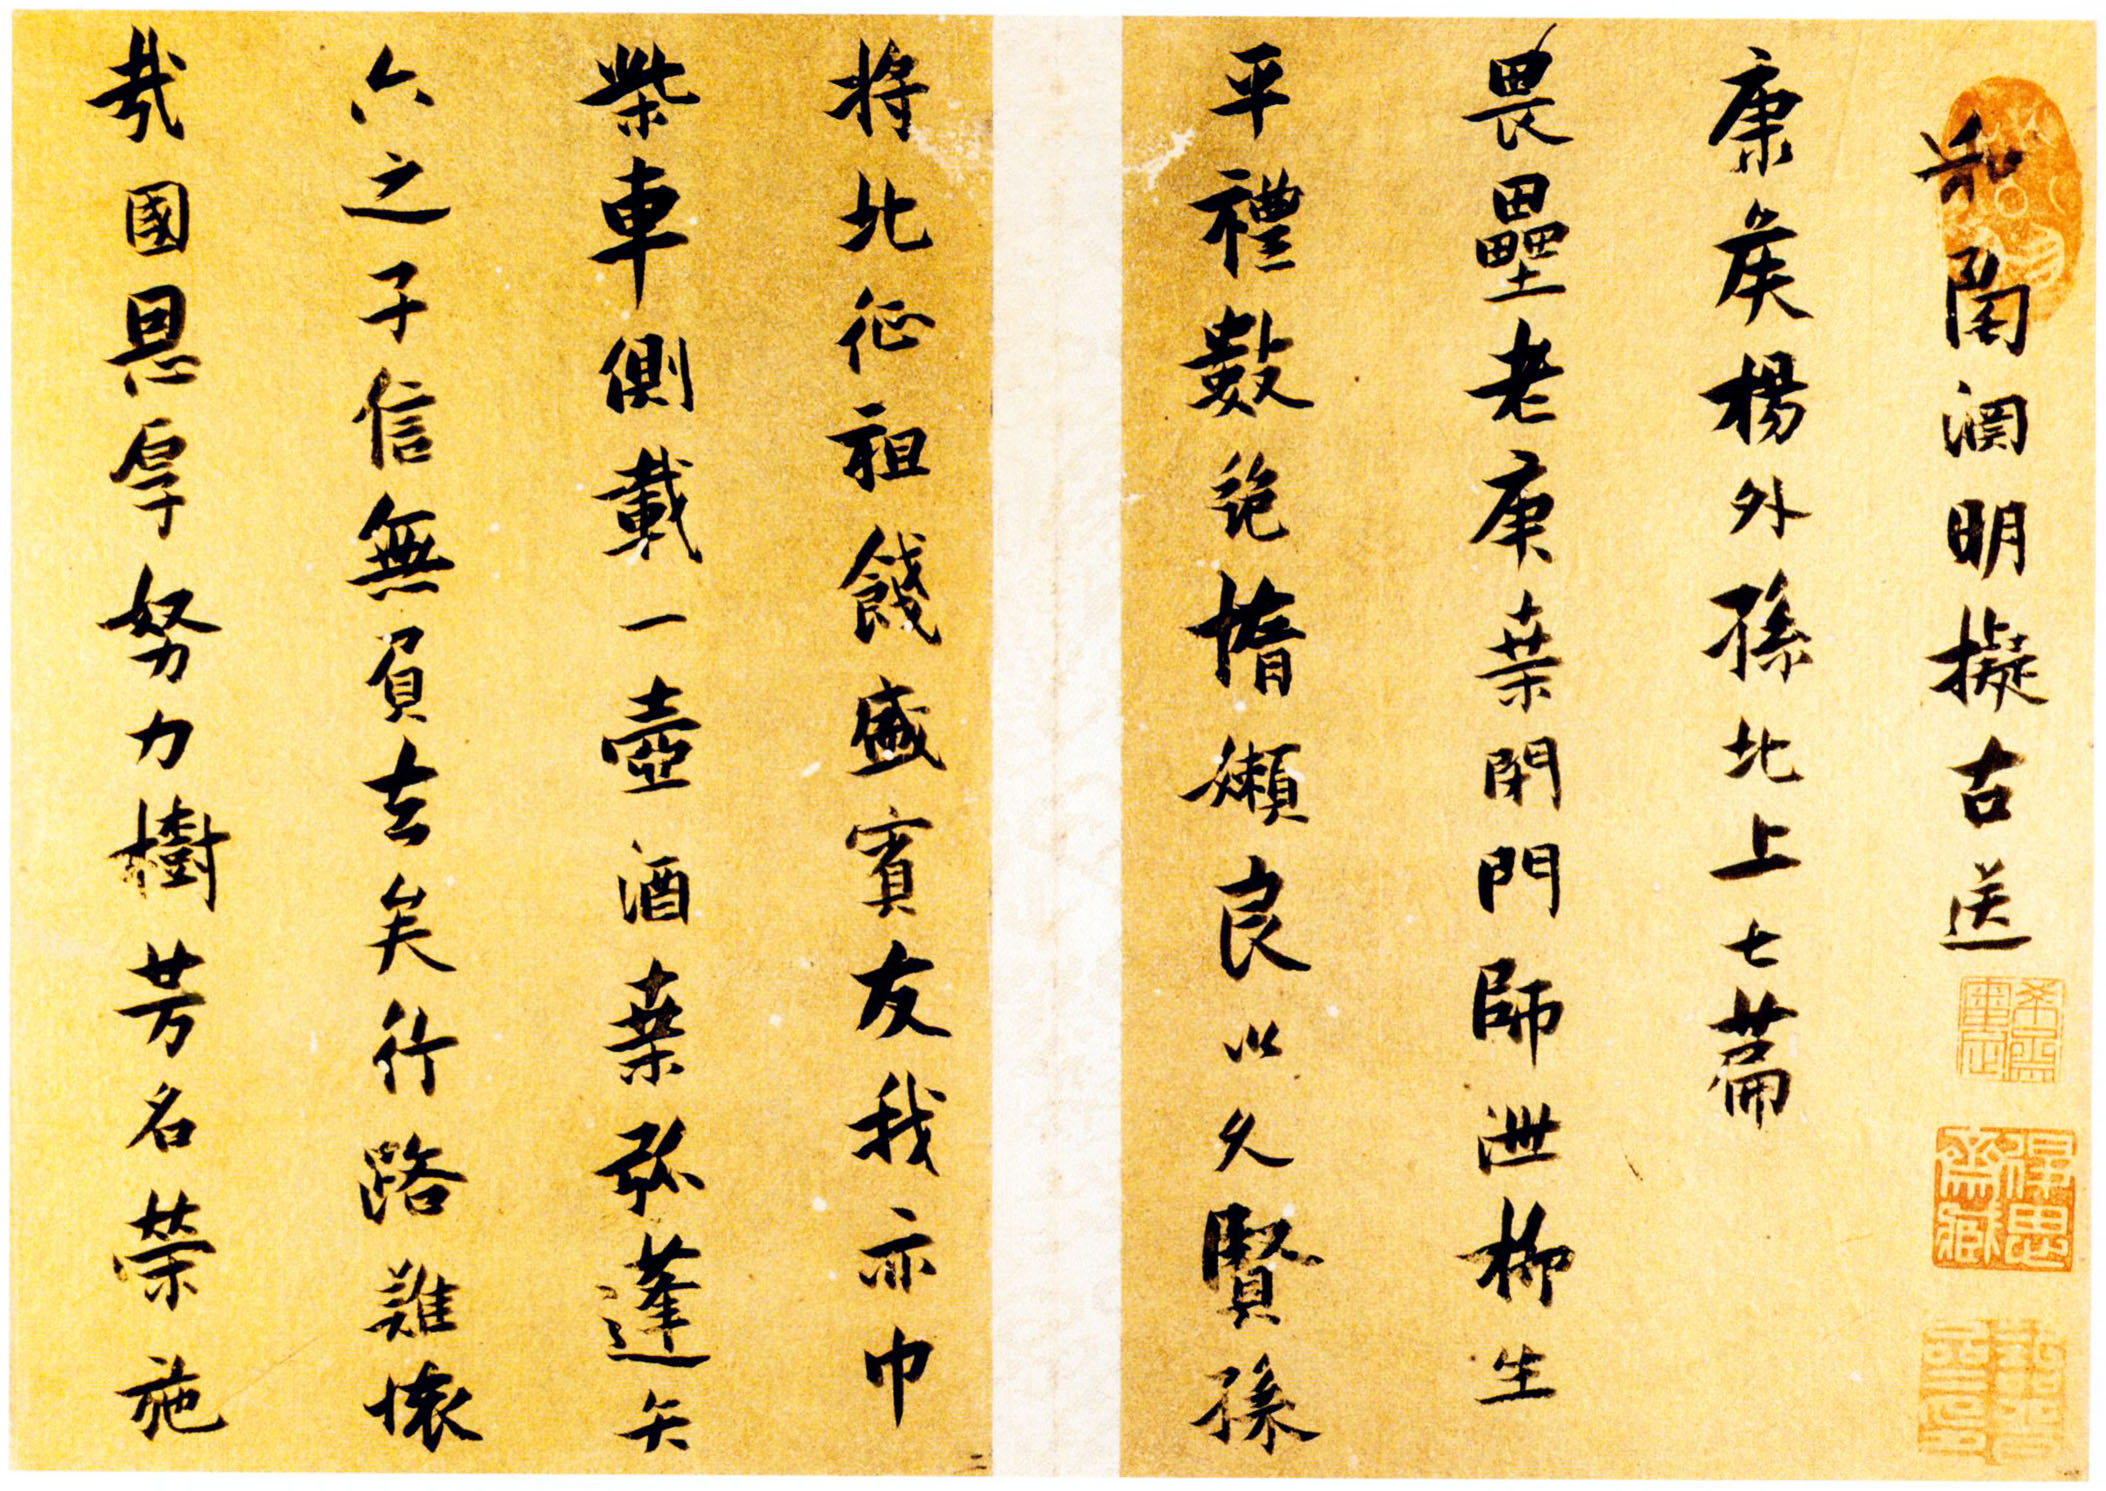 和陶淵明擬古送
康侯楊外孫北上七篇
畏壘老庚桑閉門師泄柳生
平禮數絶惰嬾良以久賢孫
將北征祖餞盛賓友我亦巾
柴車側載一壺酒桑弧蓬矢
六之子信無負去矣行路難懷
哉國恩厚努力樹芳名榮施